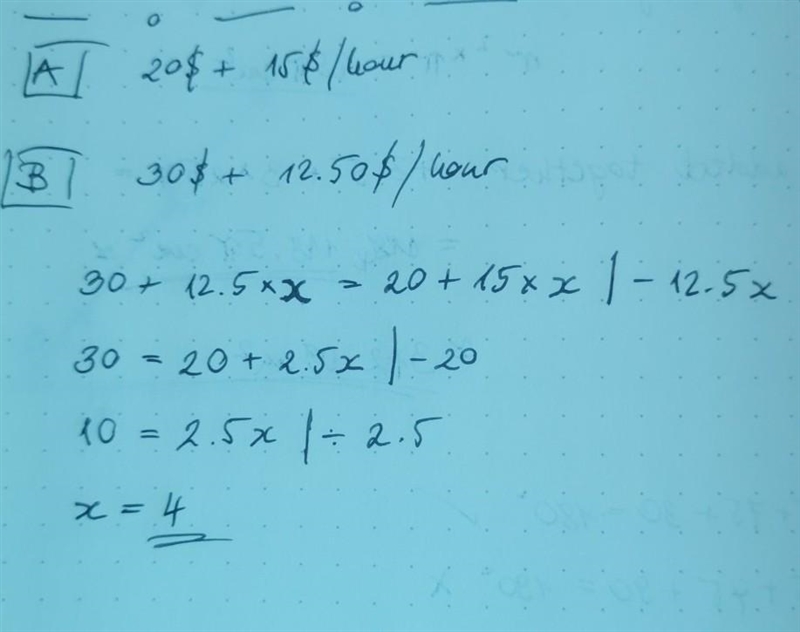 A 20$ + 15$/hour
B 30$ + 12.50$/hour
30 + 12.5 × x = 20 + 15 × x | - 12.5x
30 = 20 + 2.5x | - 20
10 = 2.5x | ÷ 2.5
x = 4